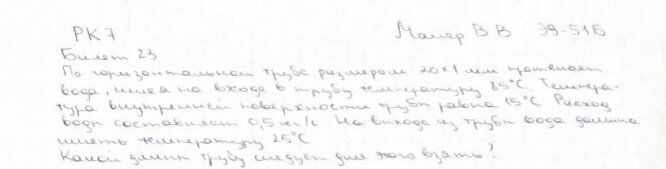 РК 7 Майер В В Э9-51Б
Билет 23
По горизонтальной трубе размером 20×1 мм протекает
вода, имея на входе в трубу температуру 85°С. Темпера-
тура внутренней поверхности трубы равна 15°С Расход
воды составляет 0,5 кг/с На выходе из трубы вода должна
иметь температуру 25°С
Какой длины трубу следует для этого взять?